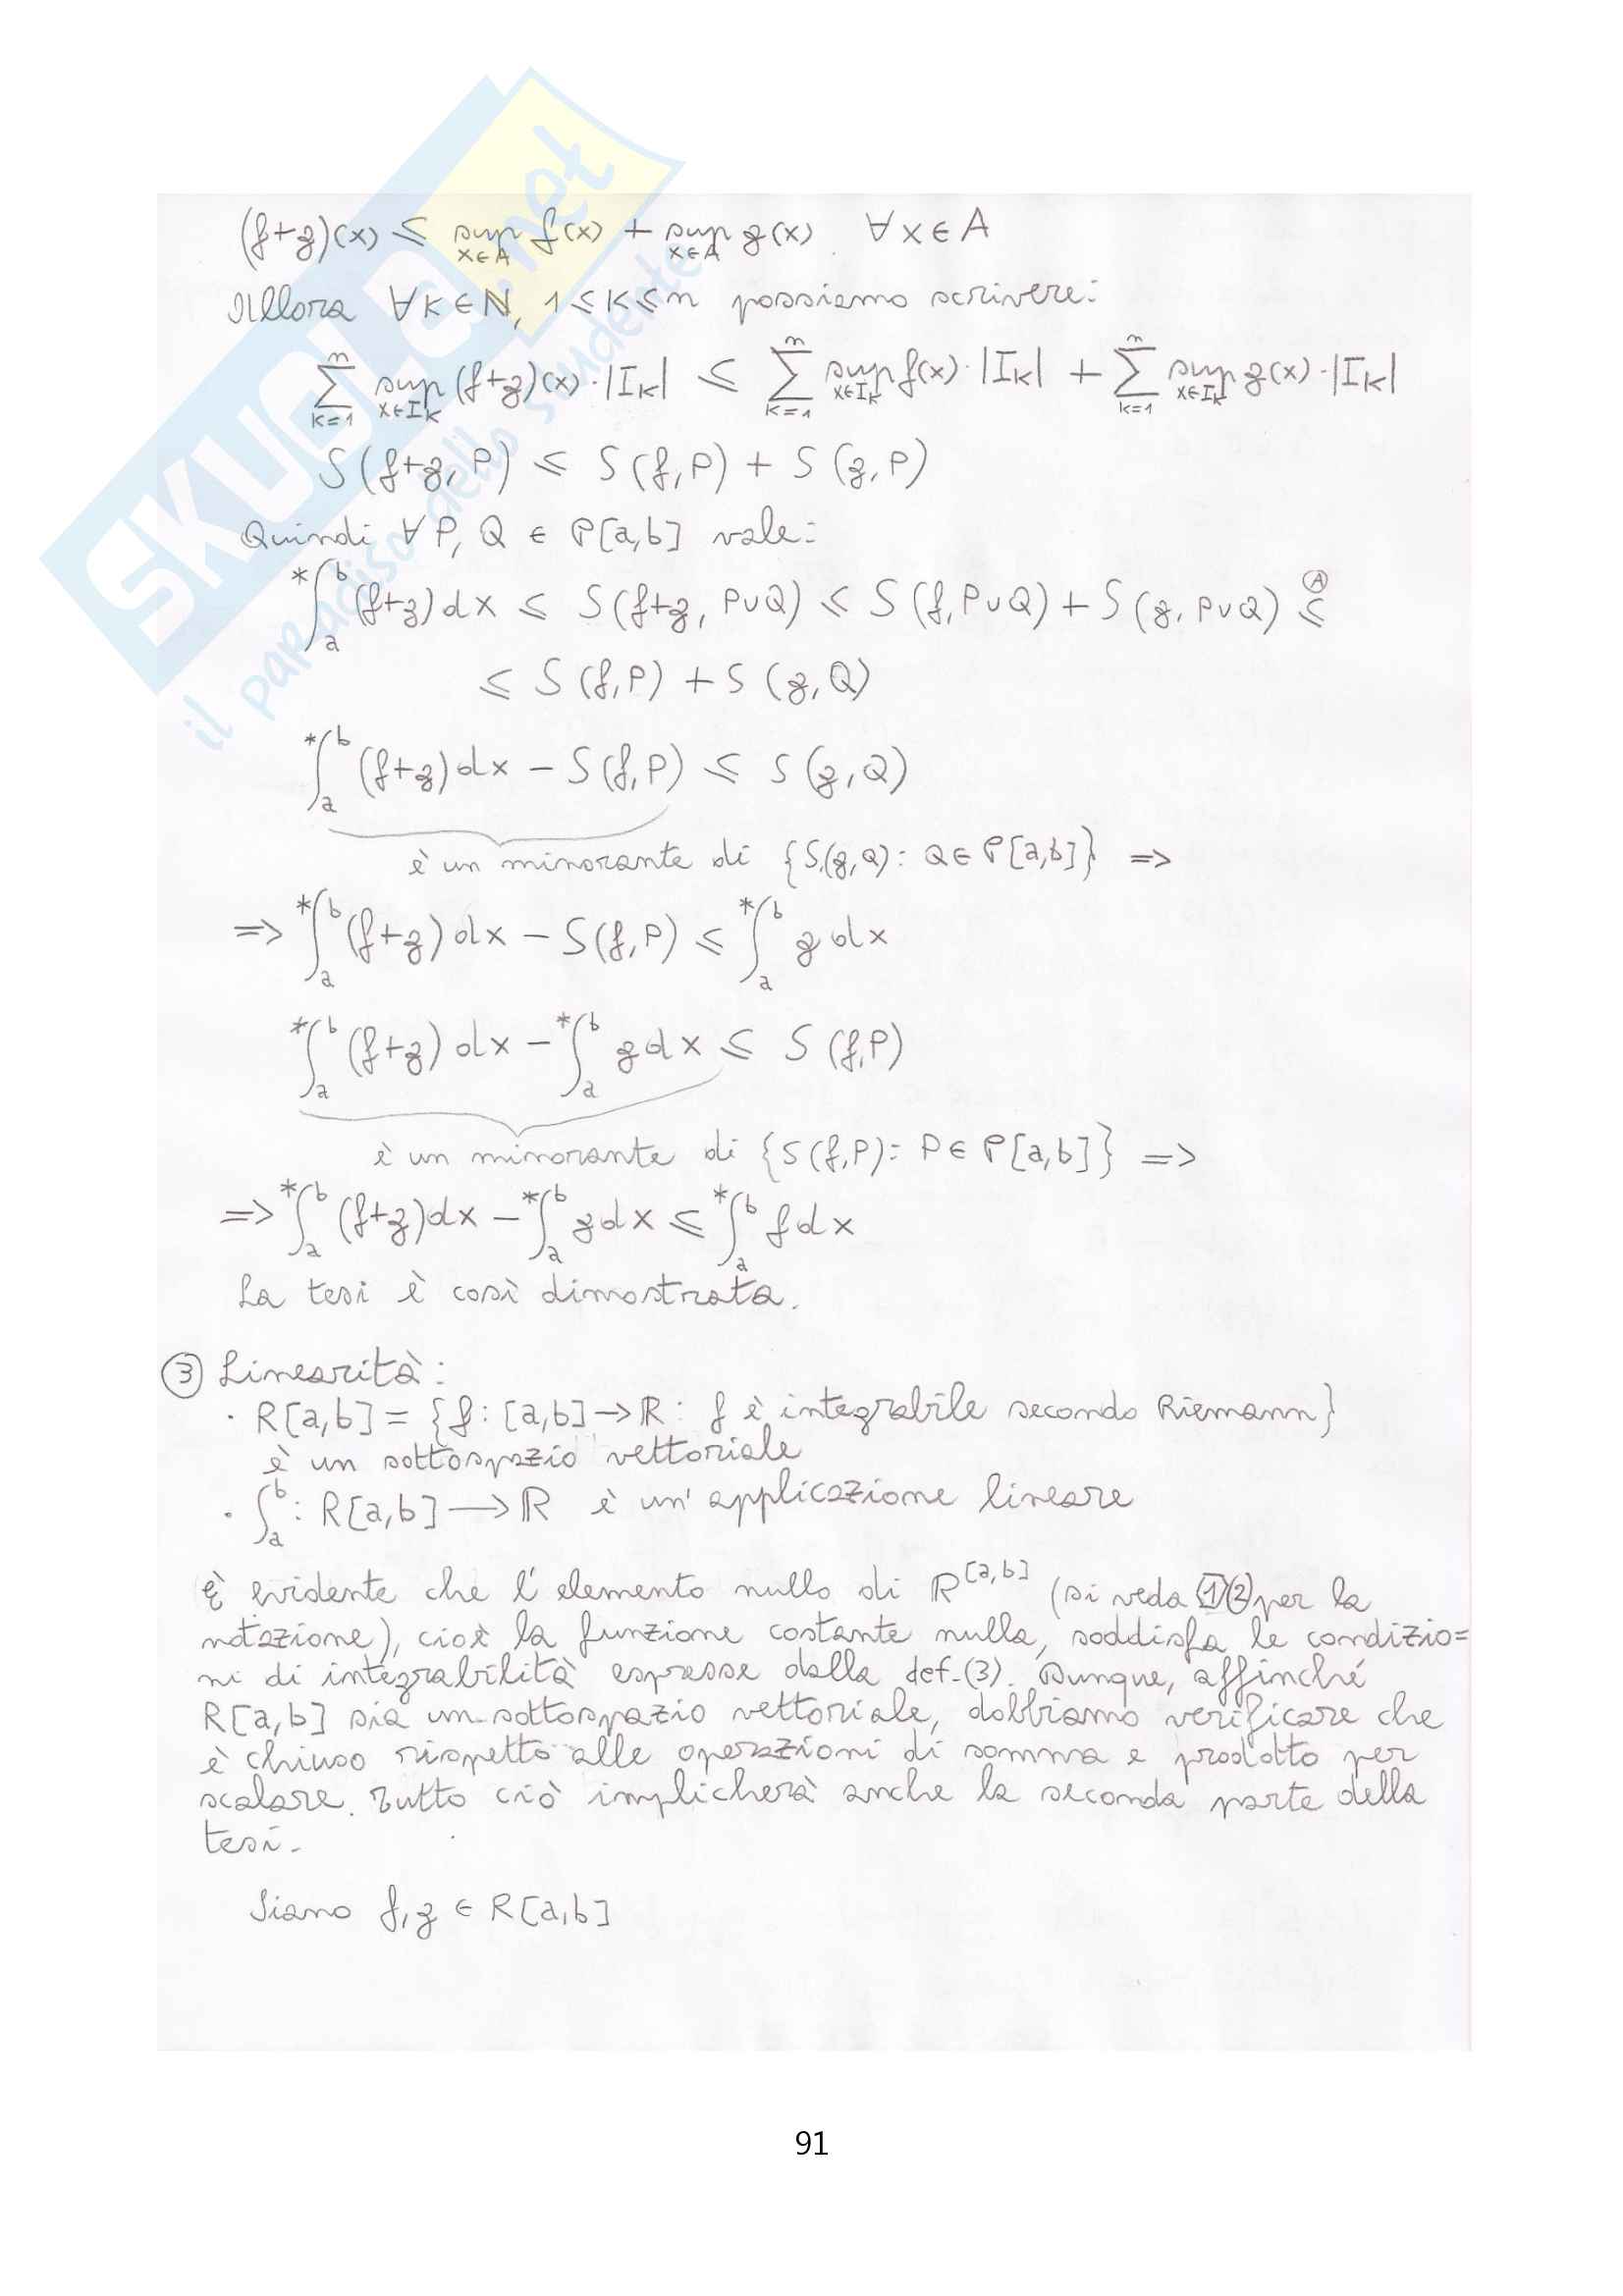 SKUOLA.net
il paradiso dello studente
(f+g)(x) ≤ sup_{x∈A} f(x) + sup_{x∈A} g(x) ∀x∈A
Allora ∀K∈N, 1≤K≤n possiamo scrivere:
∑_{K=1}^{n} sup_{x∈I_K} (f+g)(x)·|I_K| ≤ ∑_{K=1}^{n} sup_{x∈I_K} f(x)·|I_K| + ∑_{K=1}^{n} sup_{x∈I_K} g(x)·|I_K|
S(f+g,P) ≤ S(f,P) + S(g,P)
Quindi ∀P,Q ∈ P[a,b] vale:
*∫_a^b (f+g)dx ≤ S(f+g, P∪Q) ≤ S(f,P∪Q) + S(g,P∪Q) ≤^Ⓐ
≤ S(f,P) + S(g,Q)
*∫_a^b (f+g)dx − S(f,P) ≤ S(g,Q)
è un minorante di {S(g,Q): Q∈P[a,b]} =>
=> *∫_a^b (f+g)dx − S(f,P) ≤ *∫_a^b g dx
*∫_a^b (f+g)dx − *∫_a^b g dx ≤ S(f,P)
è un minorante di {S(f,P): P∈P[a,b]} =>
=> *∫_a^b (f+g)dx − *∫_a^b g dx ≤ *∫_a^b f dx
La tesi è così dimostrata.
③ Linearità:
· R[a,b] = {f:[a,b]→ℝ: f è integrabile secondo Riemann}
è un sottospazio vettoriale
· ∫_a^b : R[a,b] → ℝ è un'applicazione lineare
È evidente che l'elemento nullo di ℝ^[a,b] (si veda 1 ② per la
notazione), cioè la funzione costante nulla, soddisfa le condizio=
ni di integrabilità espresse dalla def.(3). Dunque, affinché
R[a,b] sia un sottospazio vettoriale, dobbiamo verificare che
è chiuso rispetto alle operazioni di somma e prodotto per
scalare. Tutto ciò implicherà anche la seconda parte della
tesi.
Siano f,g ∈ R[a,b]
91